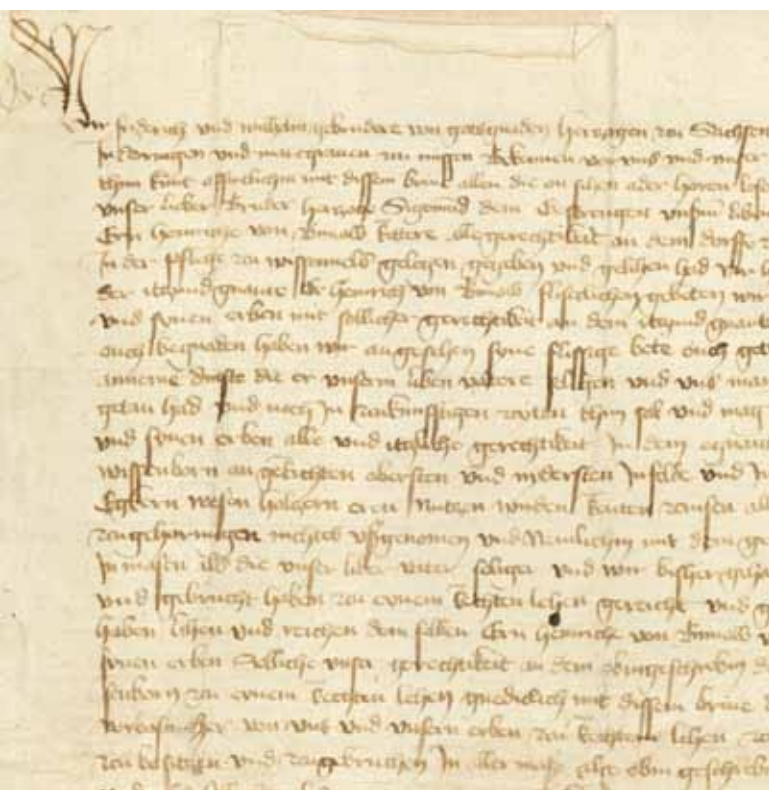 Wir friderich und wilhelm gebrudere von gotsgnaden herczogen zcu Sachsen
In doringen und marcgrauen zcu missen Bekennen vor uns und unser
thun kunt offintlichin mit dissem briue allen die on sehen ader horen lesen
unser lieber Bruder herczog Sigemund dem Gestrengen unserm liben
Ern heinriche von Bunaw Rittere alle gerechtikeit an dem dorffe
In der pflege zcu wissennfels gelegen gegeben und gelihen had
der itczundgnante Er heinrich von Bunaw flissiclichen gebeten
und synen erben mit sollicher gerechtikeit an dem itczundgnanten
ouch begnaden haben wir angesehen syne flissige bete ouch
anneme dinste die er unserm liben vatere seligen und uns
getan had und noch In zcukunfftigen zcyten thun sal und mag
und synen erben alle und itzliche gerechtikeit In dem
wissinborn an gerichten obersten und nydersten In felde und In
wesen holczern eren Nutzen wirden Renten zcinsen
zcugehorungen nichtes ußgenomen und Nemlichin mit dem
In masen als die unser liber vater seliger und wir bisher
und gebrucht haben zcu eynem Rechten lehen gereicht und
haben lihen und reichen dem selben Ern heinriche von Bunaw
synen erben Solliche unser gerechtikeit an dem obingeschriben
zcu eynem Rechten lehen gnediclich mit dissem briue
von uns und unsern erben zcu Rechtem lehen
zcu besitzen und zcugebruchen In aller mase also obin geschriben